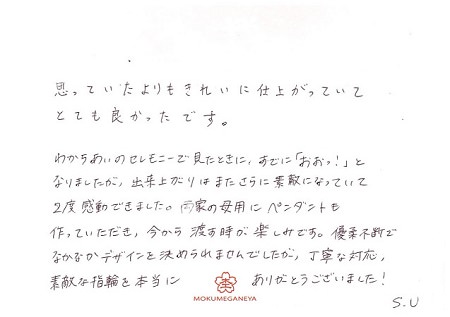 思っていたよりもきれいに仕上がっていて
とても良かったです。
わかちあいのセレモニーで見たときに、すでに「おおっ!」と
なりましたが、出来上がりはまたさらに素敵になっていて
2度感動できました。両家の母用にペンダントも
作っていただき、今から渡す時が楽しみです。優柔不断で
なかなかデザインを決められませんでしたが、丁寧な対応、
素敵な指輪を本当に ありがとうございました!
MOKUMEGANEYA
S.U